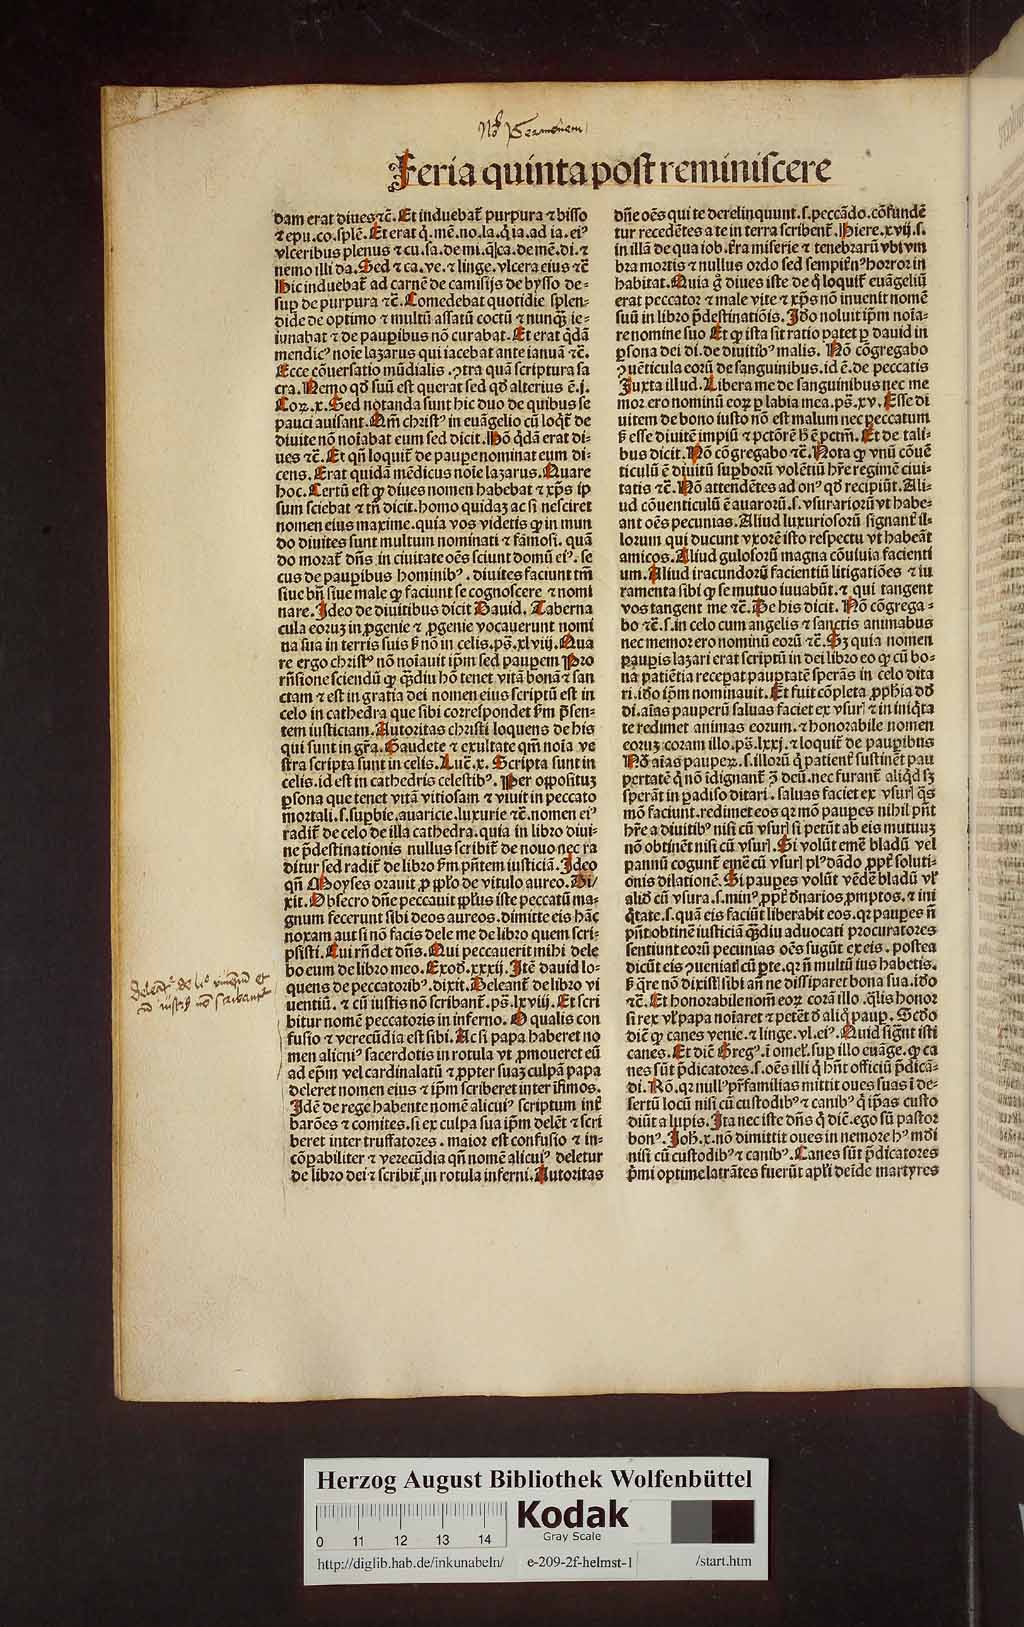 Feria quinta post reminiscere
dam erat diues ⁊c̄. Et induebat̄ purpura ⁊ bisso
⁊ epu. co. splē. Et erat q̄. mē. no. la. q̄ ia. ad ia. eiꝰ
vlceribus plenus ⁊ cu. sa. de mi. q̄ ca. de mē. di. ⁊
nemo illi da. Sed ⁊ ca. ve. ⁊ linge. vlcera eius ⁊c̄
Hic induebat̄ ad carnē de camisijs de bysso de-
sup̱ de purpura ⁊c̄. Comedebat quotidie splen-
dide de optimo ⁊ multū assatū coctū ⁊ nunqꝫ ie-
iunabat ⁊ de paup̱ibus nō curabat. Et erat q̄dā
mendicꝰ noīe lazarus qui iacebat ante ianuā ⁊c̄.
Ecce cōuersatio mūdialis. ꝯtra quā scriptura sa
cra. Nemo qd̄ suū est querat sed qd̄ alterius ē. j.
Coꝝ. x. Sed notanda sunt hic duo de quibus se
pauci auisant. Qm̄ christꝰ in euāgelio cū loqt̄ de
diuite nō noīabat eum sed dicit. Hō q̄dā erat di-
ues ⁊c̄. Et qn̄ loquit̄ de paupe nominat eum di-
cens. Erat quidā mēdicus noīe lazarus. Quare
hoc. Certū est ꝙ diues nomen habebat ⁊ xp̄s ip̄
sum sciebat ⁊ tn̄ dicit. homo quidaꝫ ac si nesciret
nomen eius maxime. quia vos videtis ꝙ in mun
do diuites sunt multum nominati ⁊ famosi. quā
do morat̄ dn̄s in ciuitate oēs sciunt domū eiꝰ. se
cus de paup̱ibus hominibꝰ. diuites faciunt tm̄
siue bn̄ siue male ꝙ faciunt se cognoscere ⁊ nomi
nare. Ideo de diuitibus dicit Dauid. Taberna
cula eoruꝫ in ꝓgenie ⁊ ꝓgenie vocauerunt nomi
na sua in terris suis ß nō in celis. ps̄. xlviij. Qua
re ergo christꝰ nō noīauit ip̄m sed paup̱em Pro
rn̄sione sciendū ꝙ qꝫdiu hō tenet vitā bonā ⁊ san
ctam ⁊ est in gratia dei nomen eius scriptū est in
celo in cathedra que sibi correspondet ßm p̄sen-
tem iusticiam. Autoritas christi loquens de his
qui sunt in gr̄a. Gaudete ⁊ exultate qm̄ noīa ve
stra scripta sunt in celis. Luc̄. x. Scripta sunt in
celis. id est in cathedris celestibꝰ. Per oppositum
p̱sona que tenet vitā vitiosam ⁊ viuit in peccato
mortali. s. sup̱bie. auaricie. luxurie ⁊c̄. nomen eiꝰ
radit̄ de celo de illa cathedra. quia in libro diui-
ne p̄destinationis nullus scribit̄ de nouo nec ra
ditur sed radit̄ de libro ßm pn̄tem iusticiā. Ideo
qn̄ Moyses orauit ꝓ pplo de vitulo aureo. Di/
xit. Obsecro dn̄e peccauit pplus iste peccatū ma-
gnum fecerunt sibi deos aureos. dimitte eis hāc
noxam aut si nō facis dele me de libro quem scri-
psisti. Cui rn̄det dn̄s. Qui peccauerit mihi dele
bo eum de libro meo. Exod̄. xxxij. Itē dauid lo-
quens de peccatoribꝰ. dixit. Deleant̄ de libro vi
uentiū. ⁊ cū iustis nō scribant̄. ps̄. lxviij. Et scri
bitur nomē peccatoris in inferno. O qualis con
fusio ⁊ verecūdia est sibi. Ac si papa haberet no
men alicuiꝰ sacerdotis in rotula vt ꝓmoueret eū
ad ep̄m vel cardinalatū ⁊ ꝓpter suaꝫ culpā papa
deleret nomen eius ⁊ ip̄m scriberet inter īfimos.
Idē de rege habente nomē alicuiꝰ scriptum int̄
barōes ⁊ comites. si ex culpa sua ip̄m delēt ⁊ scri
beret inter truffatores. maior est confusio ⁊ in-
cōpabiliter ⁊ verecūdia qn̄ nomē alicuiꝰ deletur
de libro dei ⁊ scribit̄ in rotula inferni. Autoritas
dn̄e oēs qui te derelinquunt. s. peccādo. cōfundē
tur recedētes a te in terra scribent̄. Hiere. xvij. s.
in illā de qua iob. t̄ra miserie ⁊ tenebrarū vbi vm
bra mortis ⁊ nullus ordo sed sempit̄nꝰ horror in
habitat. Quia g̊ diues iste de q̊ loquit̄ euāgeliū
erat peccator ⁊ male vite ⁊ xp̄s nō inuenit nomē
suū in libro p̄destinatiōis. Ido noluit ip̄m noīa-
re nomine suo Et ꝙ ista sit ratio patet p̱ dauid in
p̱sona dei di. de diuitibꝰ malis. Nō cōgregabo
ꝯuēticula eorū de sanguinibus. id ē. de peccatis
Iuxta illud. Libera me de sanguinibus nec me
mor ero nominū eoꝝ p̱ labia mea. ps̄. xv. Esse di
uitem de bono iusto nō est malum nec peccatum
ß esse diuitē impiū ⁊ pctōrē h̄ ē pctm̄. Et de tali-
bus dicit. Nō cōgregabo ⁊c̄. Nota ꝙ vnū cōuē
ticulū ē diuitū sup̱borū volētiū hr̄e regimē ciui-
tatis ⁊c̄. Nō attendētes ad onꝰ qd̄ recipiūt. Ali-
ud cōuenticulū ē auarorū. s. vsurariorū vt habe-
ant oēs pecunias. Aliud luxuriosorū signant̄ il-
lorum qui ducunt vxorē isto respectu vt habeāt
amicos. Aliud gulosorū magna cōuiuia facienti
um. Aliud iracundorū facientiū litigatiōes ⁊ iu
ramenta sibi ꝙ se mutuo iuuabūt. ⁊ qui tangent
vos tangent me ⁊c̄. De his dicit. Nō cōgrega-
bo ⁊c̄. s. in celo cum angelis ⁊ sanctis animabus
nec memor ero nominū eorū ⁊c̄. Sꝫ quia nomen
paup̱is lazari erat scriptū in dei libro eo ꝙ cū bo-
na patiētia recepat paup̱tatē sperās in celo dita
ri. ido ip̄m nominauit. Et fuit cōpleta ꝓph̄ia dd̄
di. aīas pauperū saluas faciet ex vsurꝭ ⁊ in iniqt̄a
te redimet animas eorum. ⁊ honorabile nomen
eoruꝫ coram illo. ps̄. lxxj. ⁊ loquit̄ de paup̱ibus
Nō aīas paupeꝝ. s. illorū q̇ patient̄ sustinēt pau
p̱ertatē q̇ nō īdignant̄ ꝯ deū. nec furant̄ aliqd̄ sꝫ
sperāt in padiso ditari. saluas faciet ex vsurꝭ qꝫ
mō faciunt. redimet eos qꝛ mō paup̱es nihil pn̄t
hr̄e a diuitibꝰ nisi cū vsurꝭ si petūt ab eis mutuuꝫ
nō obtinēt nisi cū vsurꝭ. Si volūt emē bladū vel
pannū cogunt̄ emē cū vsurꝭ plꝰ dādo ꝓpt̄ soluti-
onis dilationē. Si paup̱es volūt vēdē bladū vl̄
aliđ cū vsura. s. minꝰ. ꝓpt̄ đnarios ꝓmptos. ⁊ ini
q̄tate. s. quā eis faciūt liberabit eos. qꝛ paup̱es n̄
pn̄t obtinē iusticiā qꝫdiu aduocati procuratores
sentiunt eorū pecunias oēs sugūt ex eis. postea
dicūt eis ꝯueniatꝭ cū p̱te. qꝛ n̄ multū ius habetis.
ß q̄re nō dixistꝭ sibi an̄ ne dissiparet bona sua. ido
⁊c̄. Et honorabile nom̄ eoꝝ corā illo. q̄lis honor
si rex vl̄ papa noīaret ⁊ petēt đ aliq̊ paup̱. Scđo
dic̄ ꝙ canes venie. ⁊ linge. vl. eiꝰ. Quid sign̄t isti
canes. Et dic̄ Gregꝰ. ī omel̄. sup̱ illo euāge. ꝙ ca
nes sūt p̄dicatores. s. oēs illi q̇ hn̄t officiū p̄dicā-
di. Rō. qꝛ nullꝰ pr̄familias mittit oues suas ī de-
sertū locū nisi cū custodibꝰ ⁊ canibꝰ q̇ ip̄as custo
diūt a lupis. Ita nec iste dn̄s q̇ dic̄. ego sū pastor
bonꝰ. Joh̄. x. nō dimittit oues in nemore hꝰ mđi
nisi cū custodibꝰ ⁊ canibꝰ. Canes sūt p̄dicatores
p̄mi optime latrātes fuerūt apl̄i deīde martyres
Herzog August Bibliothek Wolfenbüttel
Kodak
Gray Scale
0 11 12 13 14
http://diglib.hab.de/inkunabeln/ e-209-2f-helmst-1 /start.htm